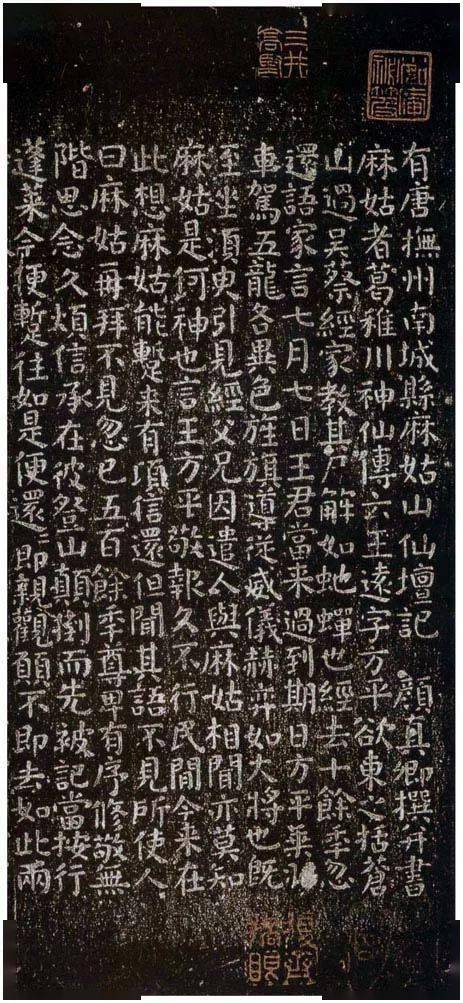 有唐撫州南城縣麻姑山仙壇記 顏真卿撰并書
麻姑者葛稚川神仙傳云王遠字方平欲東之括蒼
山過吳蔡經家教其尸解如虵蟬也經去十餘秊忽
還語家言七月七日王君當来過到期日方平乘羽
車駕五龍各異色旌旗導從威儀赫弈如大將也既
至坐須臾引見經父兄因遣人與麻姑相聞亦莫知
麻姑是何神也言王方平敬報久不行民間今来在
此想麻姑能蹔来有頃信還但聞其語不見所使人
曰麻姑再拜不見忽已五百餘秊尊卑有序修敬無
階思念久煩信承在彼登山顛倒而先被記當按行
蓬萊今便蹔往如是便還還即親觀願不即去如此兩
三井高堅